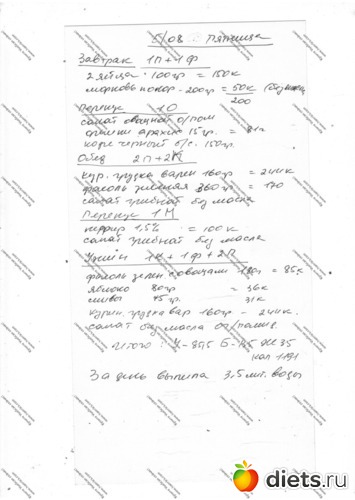 5/08 Пятница
Завтрак 1П+1Ф
2 яйца · 100гр = 150к
морковь по кор · 200гр = 50к
200
Перекус 1О
салат овощной о/пом
орешки арахис 15гр. = 81к
кофе черный б/с. 150гр.
Обед 2П+2К
кур. грудка варен 160гр = 244к
фасоль зеленая 360гр = 170
салат грибной без масла
Перекус 1М
кефир 1,5% = 100к
салат грибной без масла
Ужин 1К+1Ф+2П
фасоль зелен. с овощами 180г = 85к
яблоко 80гр = 36к
сливы 75гр. 31к
курин. грудка вар 160гр - 244к.
салат без масла
Итого: У-85,5 Б-145 Ж 35
кал 1191
За день выпила 3,5 лит. воды
diets.ru